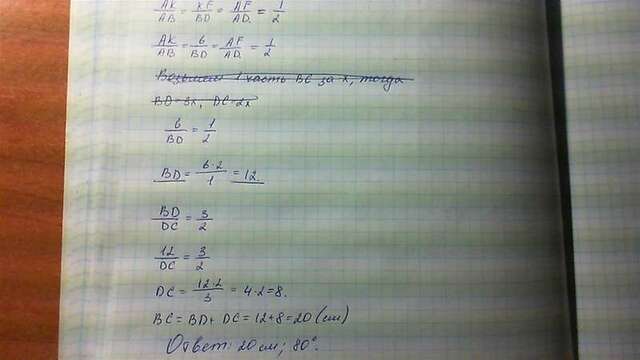 AK/AB = KF/BD = AF/AD = 1/2
AK/AB = 6/BD = AF/AD = 1/2
Возьмем 1 часть BC за x, тогда
BD=3x, DC=2x
6/BD = 1/2
BD = 6·2/1 = 12
BD/DC = 3/2
12/DC = 3/2
DC = 12·2/3 = 4·2=8.
BC = BD+DC = 12+8=20 (см)
Ответ: 20 см; 80°.